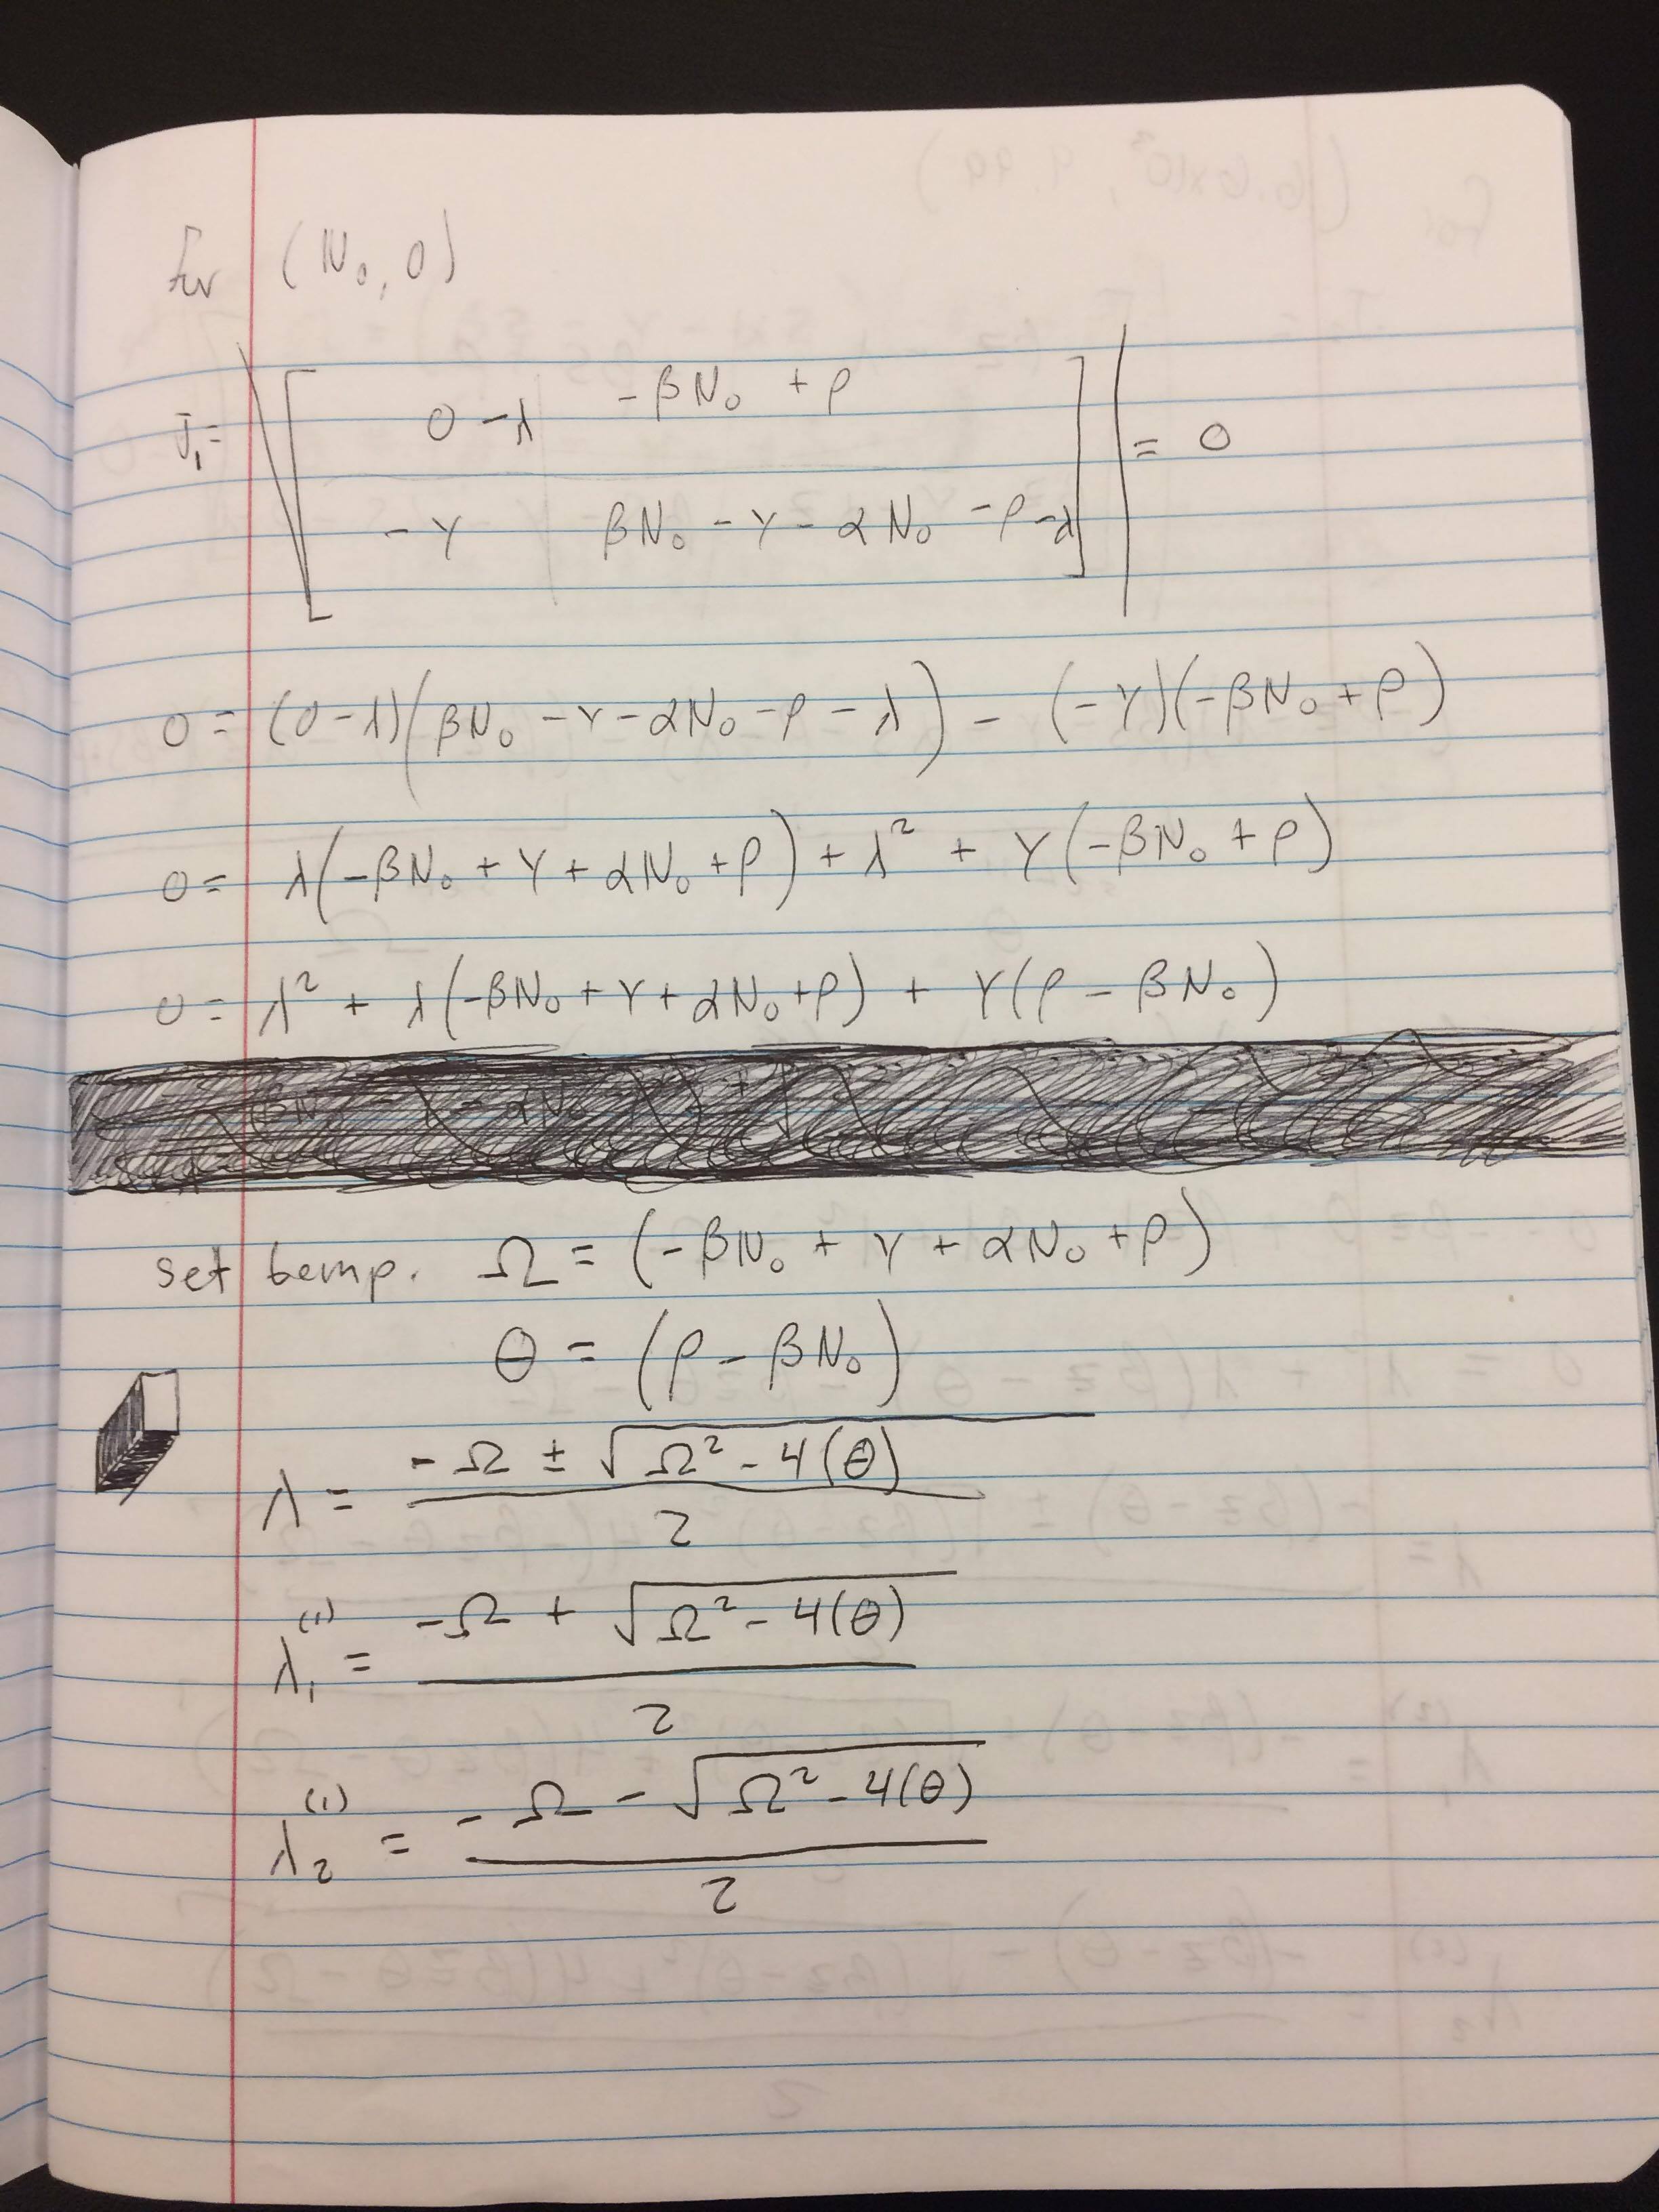 for (N₀, 0)
J₁ = |[ 0 - λ   -βN₀ + ρ
-γ   βN₀ - γ - αN₀ - ρ - λ ]| = 0
0 = (0 - λ)(βN₀ - γ - αN₀ - ρ - λ) - (-γ)(-βN₀ + ρ)
0 = λ(-βN₀ + γ + αN₀ + ρ) + λ² + γ(-βN₀ + ρ)
0 = λ² + λ(-βN₀ + γ + αN₀ + ρ) + γ(ρ - βN₀)
set temp. Ω = (-βN₀ + γ + αN₀ + ρ)
θ = (ρ - βN₀)
λ = (-Ω ± √(Ω² - 4(θ))) / 2
λ₁⁽¹⁾ = (-Ω + √(Ω² - 4(θ))) / 2
λ₂⁽¹⁾ = (-Ω - √(Ω² - 4(θ))) / 2